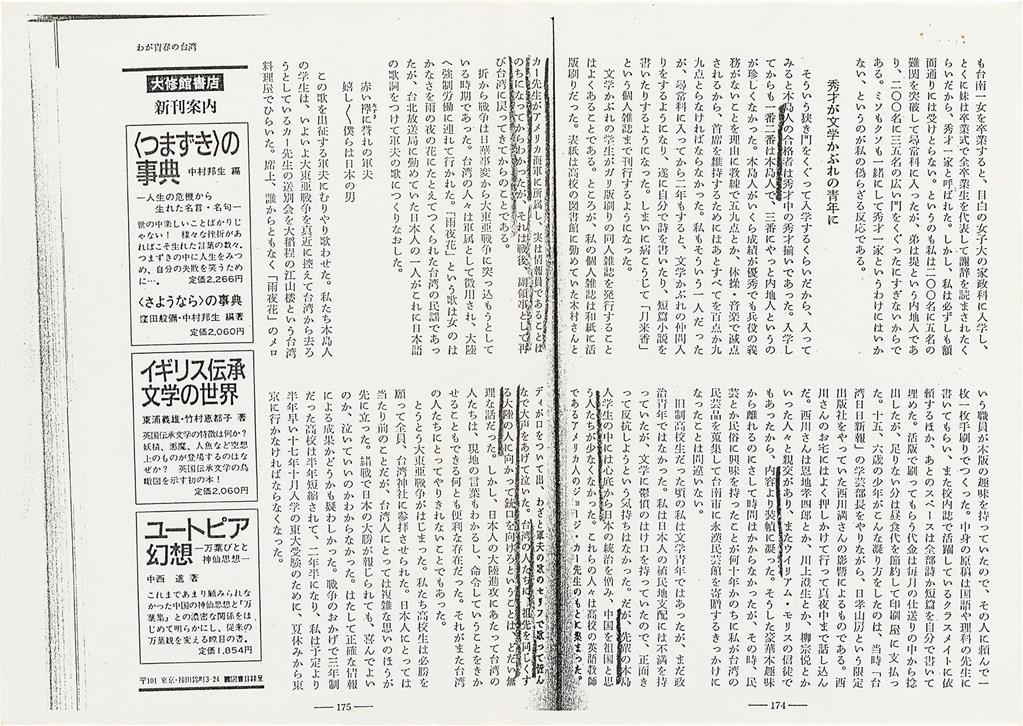 も台南一女を卒業すると、目白の女子大の家政科に入学し、
とくに妹は卒業式で全卒業生を代表して謝辞を読まされたく
らいだから、秀才一家と呼ばれた。しかし、私は必ずしも額
面通りには受けとらない。というのも私は二〇〇名に五名の
難関を突破して尋常科に入ったが、弟は是という内地人であ
り、二〇〇名に三五名の広い門をくぐったにすぎないからで
ある。ミソもクソも一緒にして秀才一家というわけにはいか
ない、というのが私の偽らざる反応である。
秀才が文学かぶれの青年に
そういう狭き門をくぐって入学するくらいだから、入って
みると本島人の合格者は秀才中の秀才揃いであった。入学し
てからも一番二番は本島人で、三番にやっと内地人というの
が珍しくなかった。本島人がいくら成績が優秀でも兵役の義
務がないことを理由に教練で五九点とか、体操、音楽で減点
されるから、首席を維持するためにはあとすべてを百点か九
九点とらなければならなかった。私もそういう一人だった
が、尋常科に入ってから二年もすると、文学かぶれの仲間入
りをするようになり、遂に自分で詩を書いたり、短篇小説を
書いたりするようになった。しまいに病こうじて「月来香」
という個人雑誌まで刊行するようになった。
文学かぶれの学生がガリ版刷りの同人雑誌を発行すること
はよくあることである。ところが、私の個人雑誌は和紙に活
版刷りだった。表紙は高校の図書館に勤めていた木村さんと
いう職員が木版の趣味を持っていたので、その人に頼んで一
枚一枚手刷りでつくった。中身の原稿は国語や理科の先生に
書いてもらい、また校内誌で活躍しているクラスメイトに依
頼するほか、あとのスペースは全部詩か短篇を自分で書いて
埋めた。活版で刷ってもらう代金は毎月の仕送りの中から捻
出したが、足りない分は昼食代を節約して印刷屋に支払っ
た。十五、六歳の少年がこんな凝り方をしたのは、当時「台
湾日日新報」の学芸部長をやりながら、日孝山房という限定
出版社をやっていた西川満さんの影響によるものである。西
川さんのお宅にはよく押しかけて行って真夜中まで話し込ん
だ。西川さんは恩地孝四郎とか、川上澄生とか、柳宗悦とか
いった人々と親交があり、またウイリアム・モリスの信徒で
もあったから、内容より装幀に凝った。そうした豪華本趣味
から離れるのにさして時間はかからなかったが、その時、民
芸とか民俗に興味を持ったことが何十年かのちに私が台湾の
民芸品を蒐集して台南市に永漢民芸館を寄贈するきっかけに
なったことは間違いない。
旧制高校生だった頃の私は文学青年ではあったが、まだ政
治青年ではなかった。私は日本人の植民地支配には不満を持
っていたが、文学に鬱憤のはけ口を持っていたので、正面き
って反抗しようという気持ちはなかった。だが、先輩の本島
人学生の中には心底から日本の統治を憎み、中国を祖国と思
う人たちが少なくなかった。これらの人々は高校の英語教師
であるアメリカ人のジョージ・カー先生のもとに集まった。
―174―
わが青春の台湾
カー先生がアメリカ海軍に所属し、実は情報員であることは
のちになってからわかったが、それは戦後、副領事として再
び台湾に戻ってきてからのことである。
折から戦争は日華事変から大東亜戦争に突っ込もうとして
いる時期であった。台湾の人々は軍属として徴用され、大陸
へ強制労働に連れて行かれた。「雨夜花」という歌は女のは
かなさを雨の夜の花にたとえてつくられた台湾の民謡であっ
たが、台北放送局に勤めていた日本人の一人がこれに日本語
の歌詞をつけて軍夫の歌につくりなおした。
赤い襷に誉れの軍夫
嬉しく〱僕らは日本の男
この歌を出征する軍夫にむりやり歌わせた。私たち本島人
の学生は、いよいよ大東亜戦争を真近に控えて台湾から去ろ
うとしているカー先生の送別会を大稲埕の江山楼という台湾
料理屋でひらいた。席上、誰からともなく「雨夜花」のメロ
ディが口をついて出、わざと軍夫の歌のセリフで歌って皆ん
なで大声をあげて泣いた。台湾の人たちに、祖先を同じくす
る大陸の人に向かって銃口を向けろということは、どだい無
理な話だった。しかし、日本人の大陸進攻にあたって台湾の
人たちは、現地の言葉もわかるし、命令していうことをきか
せることもできる何とも便利な存在だった。それがまた台湾
の人たちにとってやりきれないことでもあった。
とうとう大東亜戦争がはじまった。私たち高校生は必勝を
願って全員、台湾神社に参拝させられた。日本人にとっては
当たり前のことだが、台湾人にとっては複雑な思いのほうが
先に立った。緒戦で日本の大勝が報じられても、喜んでよい
のか、泣いていいのかわからなかった。はたして正確な情報
による成果かどうかも疑わしかった。戦争のおかげで三年制
だった高校は半年短縮されて、二年半になり、私は予定より
半年早い十七年十月入学の東大受験のために、夏休みから東
京に行かなければならなくなった。
―175―
大修館書店
新刊案内
〈つまずき〉の
事典 中村邦生 編
―人生の危機から
生れた名言・名句―
世の中楽しいことばかりじ
ゃない! 様々な挫折があ
ればこそ生れた言葉の数々。
つまずきの中に人生をみつ
め、自分の失敗を笑うため
に…。 定価2,266円
〈さようなら〉の事典
窪田般彌・中村邦生 編著
定価2,060円
イギリス伝承
文学の世界
東浦義雄・竹村恵都子 著
英国伝承文学の特徴は何か?
妖精、悪魔、人魚など空想
上のものが登場するのはな
ぜか? 英国伝承文学の鳥
瞰図を示す初の本!
定価2,060円
ユートピア
幻想 ―万葉びとと
神仙思想―
中西 進 著
これまであまり顧みられな
かった中国の神仙思想と「万
葉集」との濃密な関係をは
じめて明らかにし、従来の
万葉観を変える瞠目の書。
定価1,854円
〒101 東京・神田錦町3-24 ■図書目録呈